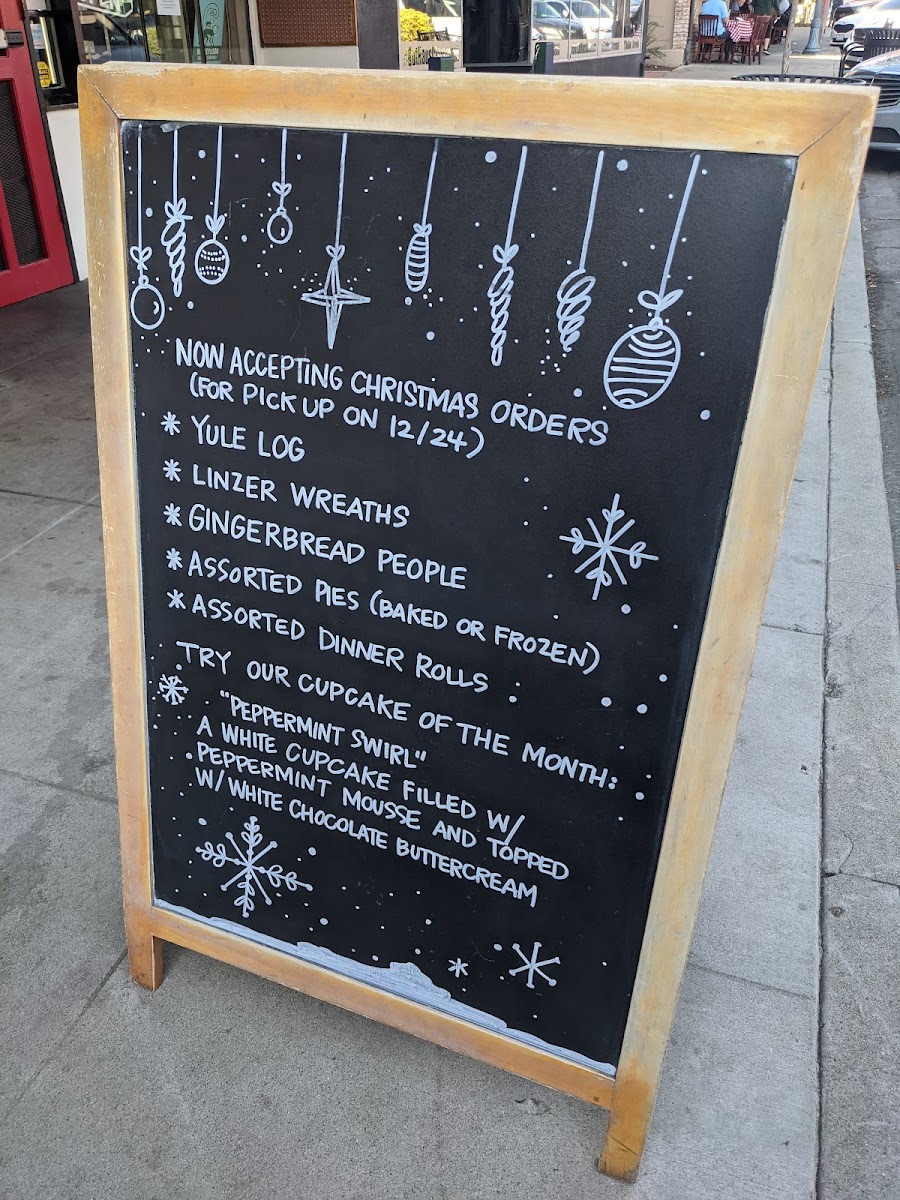 NOW ACCEPTING CHRISTMAS ORDERS
(FOR PICK UP ON 12/24)
* YULE LOG
* LINZER WREATHS
* GINGERBREAD PEOPLE
* ASSORTED PIES (BAKED OR FROZEN)
* ASSORTED DINNER ROLLS
TRY OUR CUPCAKE OF THE MONTH:
"PEPPERMINT SWIRL"
A WHITE CUPCAKE FILLED W/
PEPPERMINT MOUSSE AND TOPPED
W/ WHITE CHOCOLATE BUTTERCREAM